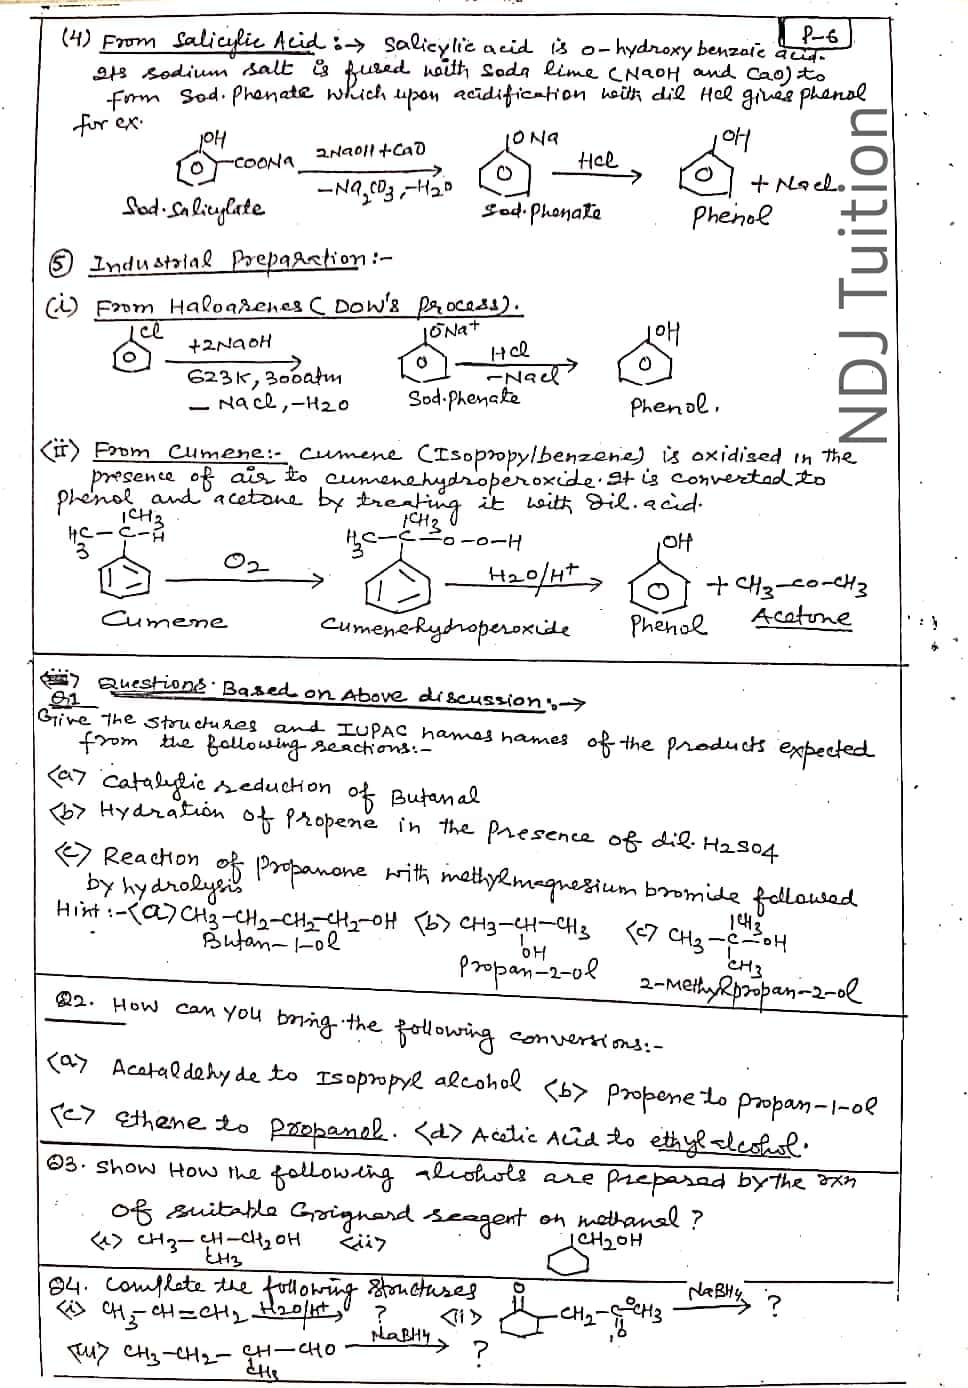 P-6
(4) From Salicylic Acid :→ Salicylic acid is o-hydroxy benzoic acid.
Its sodium salt is fused with Soda lime (NaOH and CaO) to
form Sod. Phenate which upon acidification with dil Hcl gives phenol
for ex.
OH ONa OH
COONa 2NaOH+CaO HCl
-Na2CO3,-H2O + Nacl.
Sod. Salicylate Sod. Phenate Phenol
NDJ Tuition
(5) Industrial Preparation :-
(i) From Haloarenes ( DOW'S Process).
Cl ŌNa+ OH
+2NaOH HCl
623K, 300atm -Nacl
- NaCl,-H2O Sod.Phenate Phenol.
(ii) From Cumene:- Cumene (Isopropylbenzene) is oxidised in the
presence of air to cumenehydroperoxide. It is converted to
phenol and acetone by treating it with dil. acid.
CH3 CH3
H3C-C-H H3C-C-O-O-H OH
O2 H2O/H+ + CH3-CO-CH3
Cumene Cumenehydroperoxide Phenol Acetone
Questions Based on Above discussion:→
Q.1
Give the structures and IUPAC names names of the products expected
from the following reactions:-
(a) Catalytic reduction of Butanal
(b) Hydration of Propene in the presence of dil. H2SO4
(c) Reaction of Propanone with methylmagnesium bromide followed
by hydrolysis
Hint :-(a) CH3-CH2-CH2-CH2-OH (b) CH3-CH-CH3 (c) CH3-C-OH
CH3
Butan-1-ol OH CH3
Propan-2-ol 2-Methylpropan-2-ol
Q2. How can you bring the following conversions:-
(a) Acetaldehyde to Isopropyl alcohol (b) Propene to propan-1-ol
(c) Ethene to Propanol. (d) Acetic Acid to ethyl alcohol.
Q3. Show How the following alcohols are prepared by the rxn
of suitable Grignard reagent on methanal ?
(i) CH3-CH-CH2OH (ii) CH2OH
CH3
Q4. Complete the following structures
(i) CH3-CH=CH2 H2O/H+ ? (ii) O CH2-C-OCH3 NaBH4 ?
O
(iii) CH3-CH2-CH-CHO NaBH4 ?
CH3